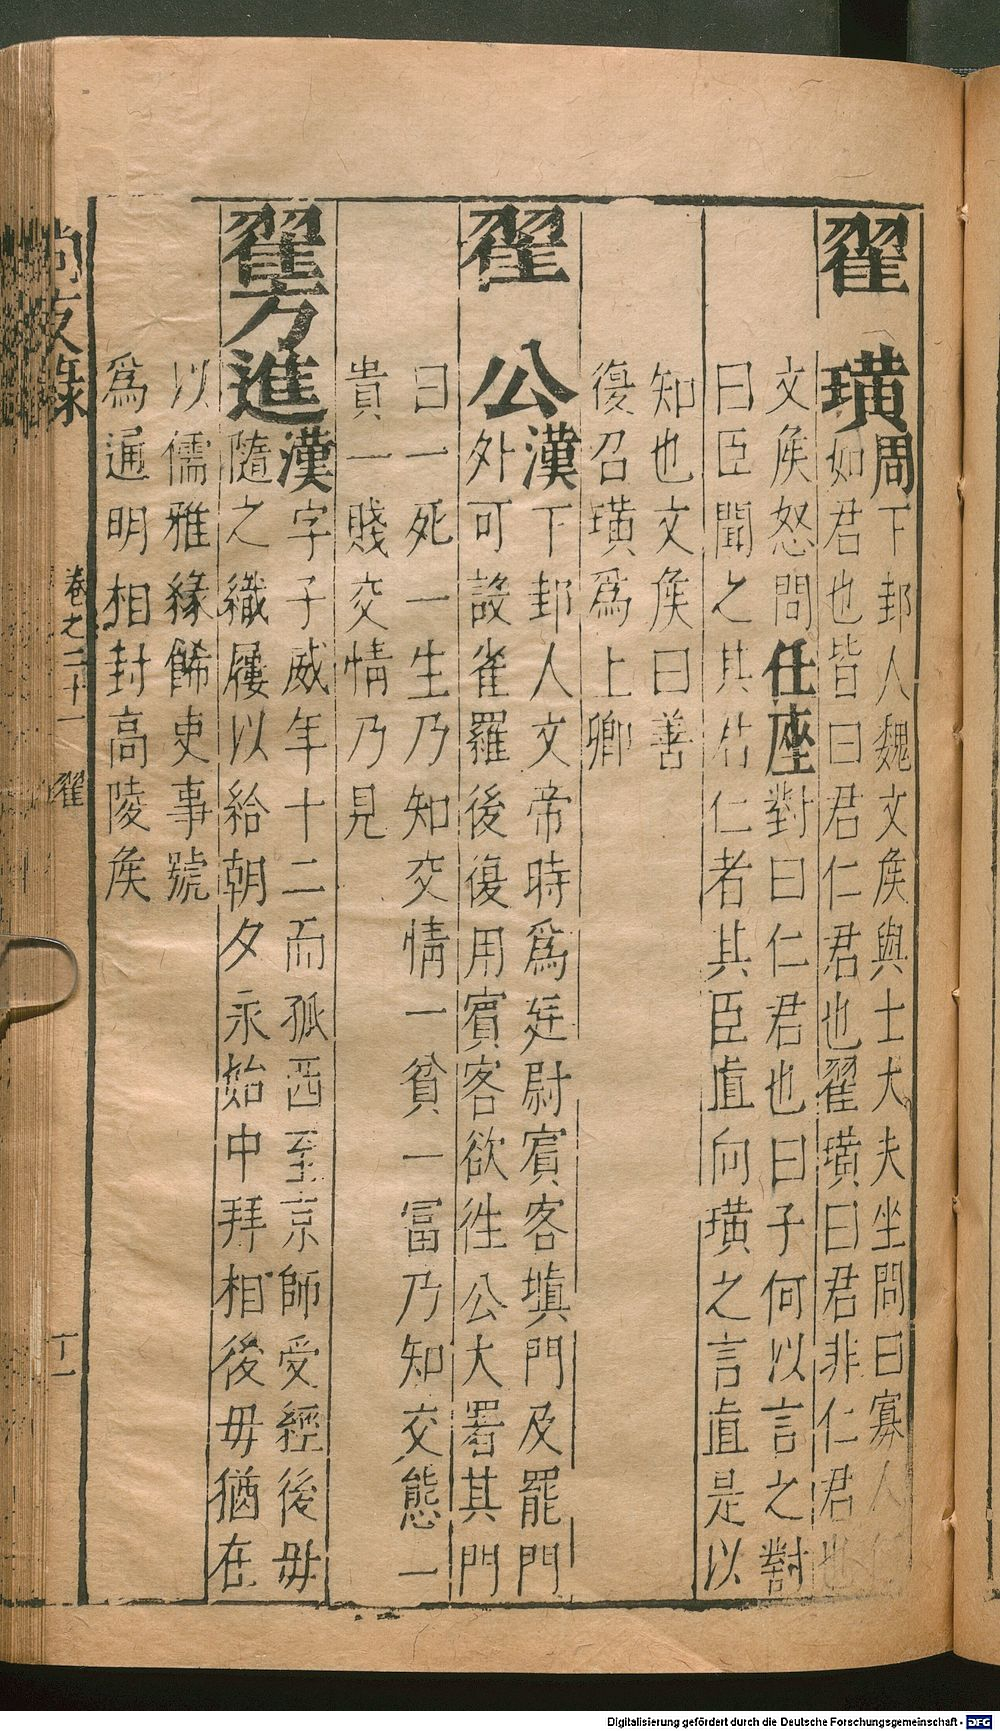 翟　璜周下邽人魏文矦與士大夫坐問曰寡人
如君也皆曰君仁君也翟璜曰君非仁君也
文矦怒問任座對曰仁君也曰子何以言之對
曰臣聞之其君仁者其臣直向璜之言直是以
知也文矦曰善
復召璜爲上卿
翟　公漢下邽人文帝時爲廷尉賓客塡門及罷門
外可設雀羅後復用賓客欲徃公大署其門
曰一死一生乃知交情一貧一冨乃知交態一
貴一賤交情乃見
翟方進漢字子威年十二而孤西至京師受經後毋
隨之織屨以給朝夕永始中拜相後毋猶在
以儒雅緣餙吏事號
爲通明相封高陵矦
尚友錄　卷之二十一　翟　十一
Digitalisierung gefördert durch die Deutsche Forschungsgemeinschaft - DFG